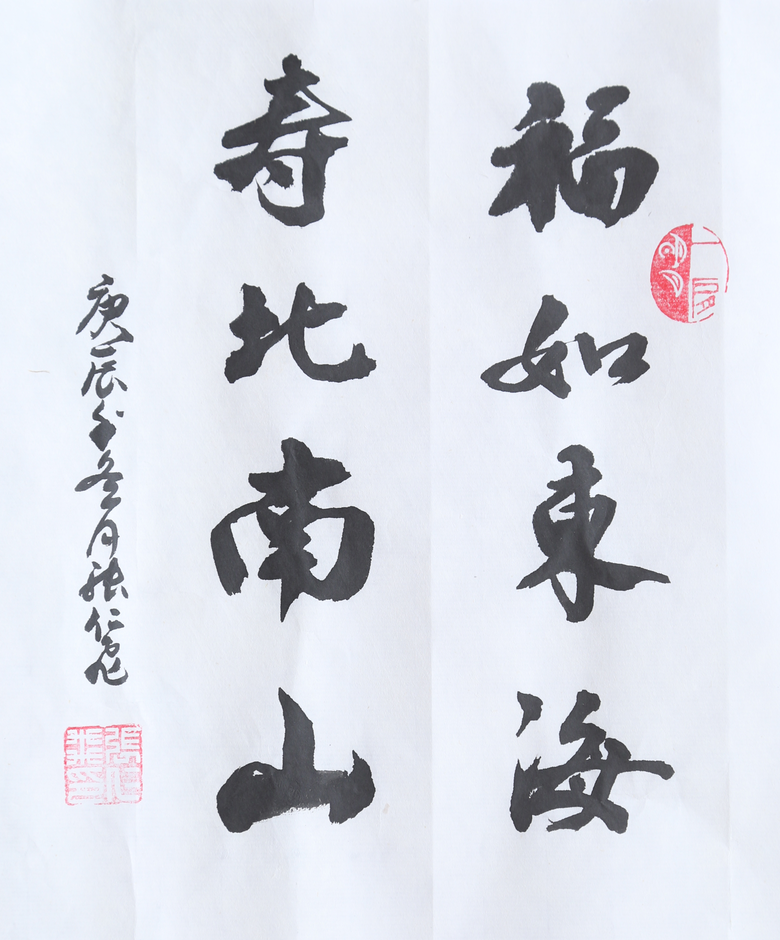 福如東海
寿比南山
庚辰年冬月张仁